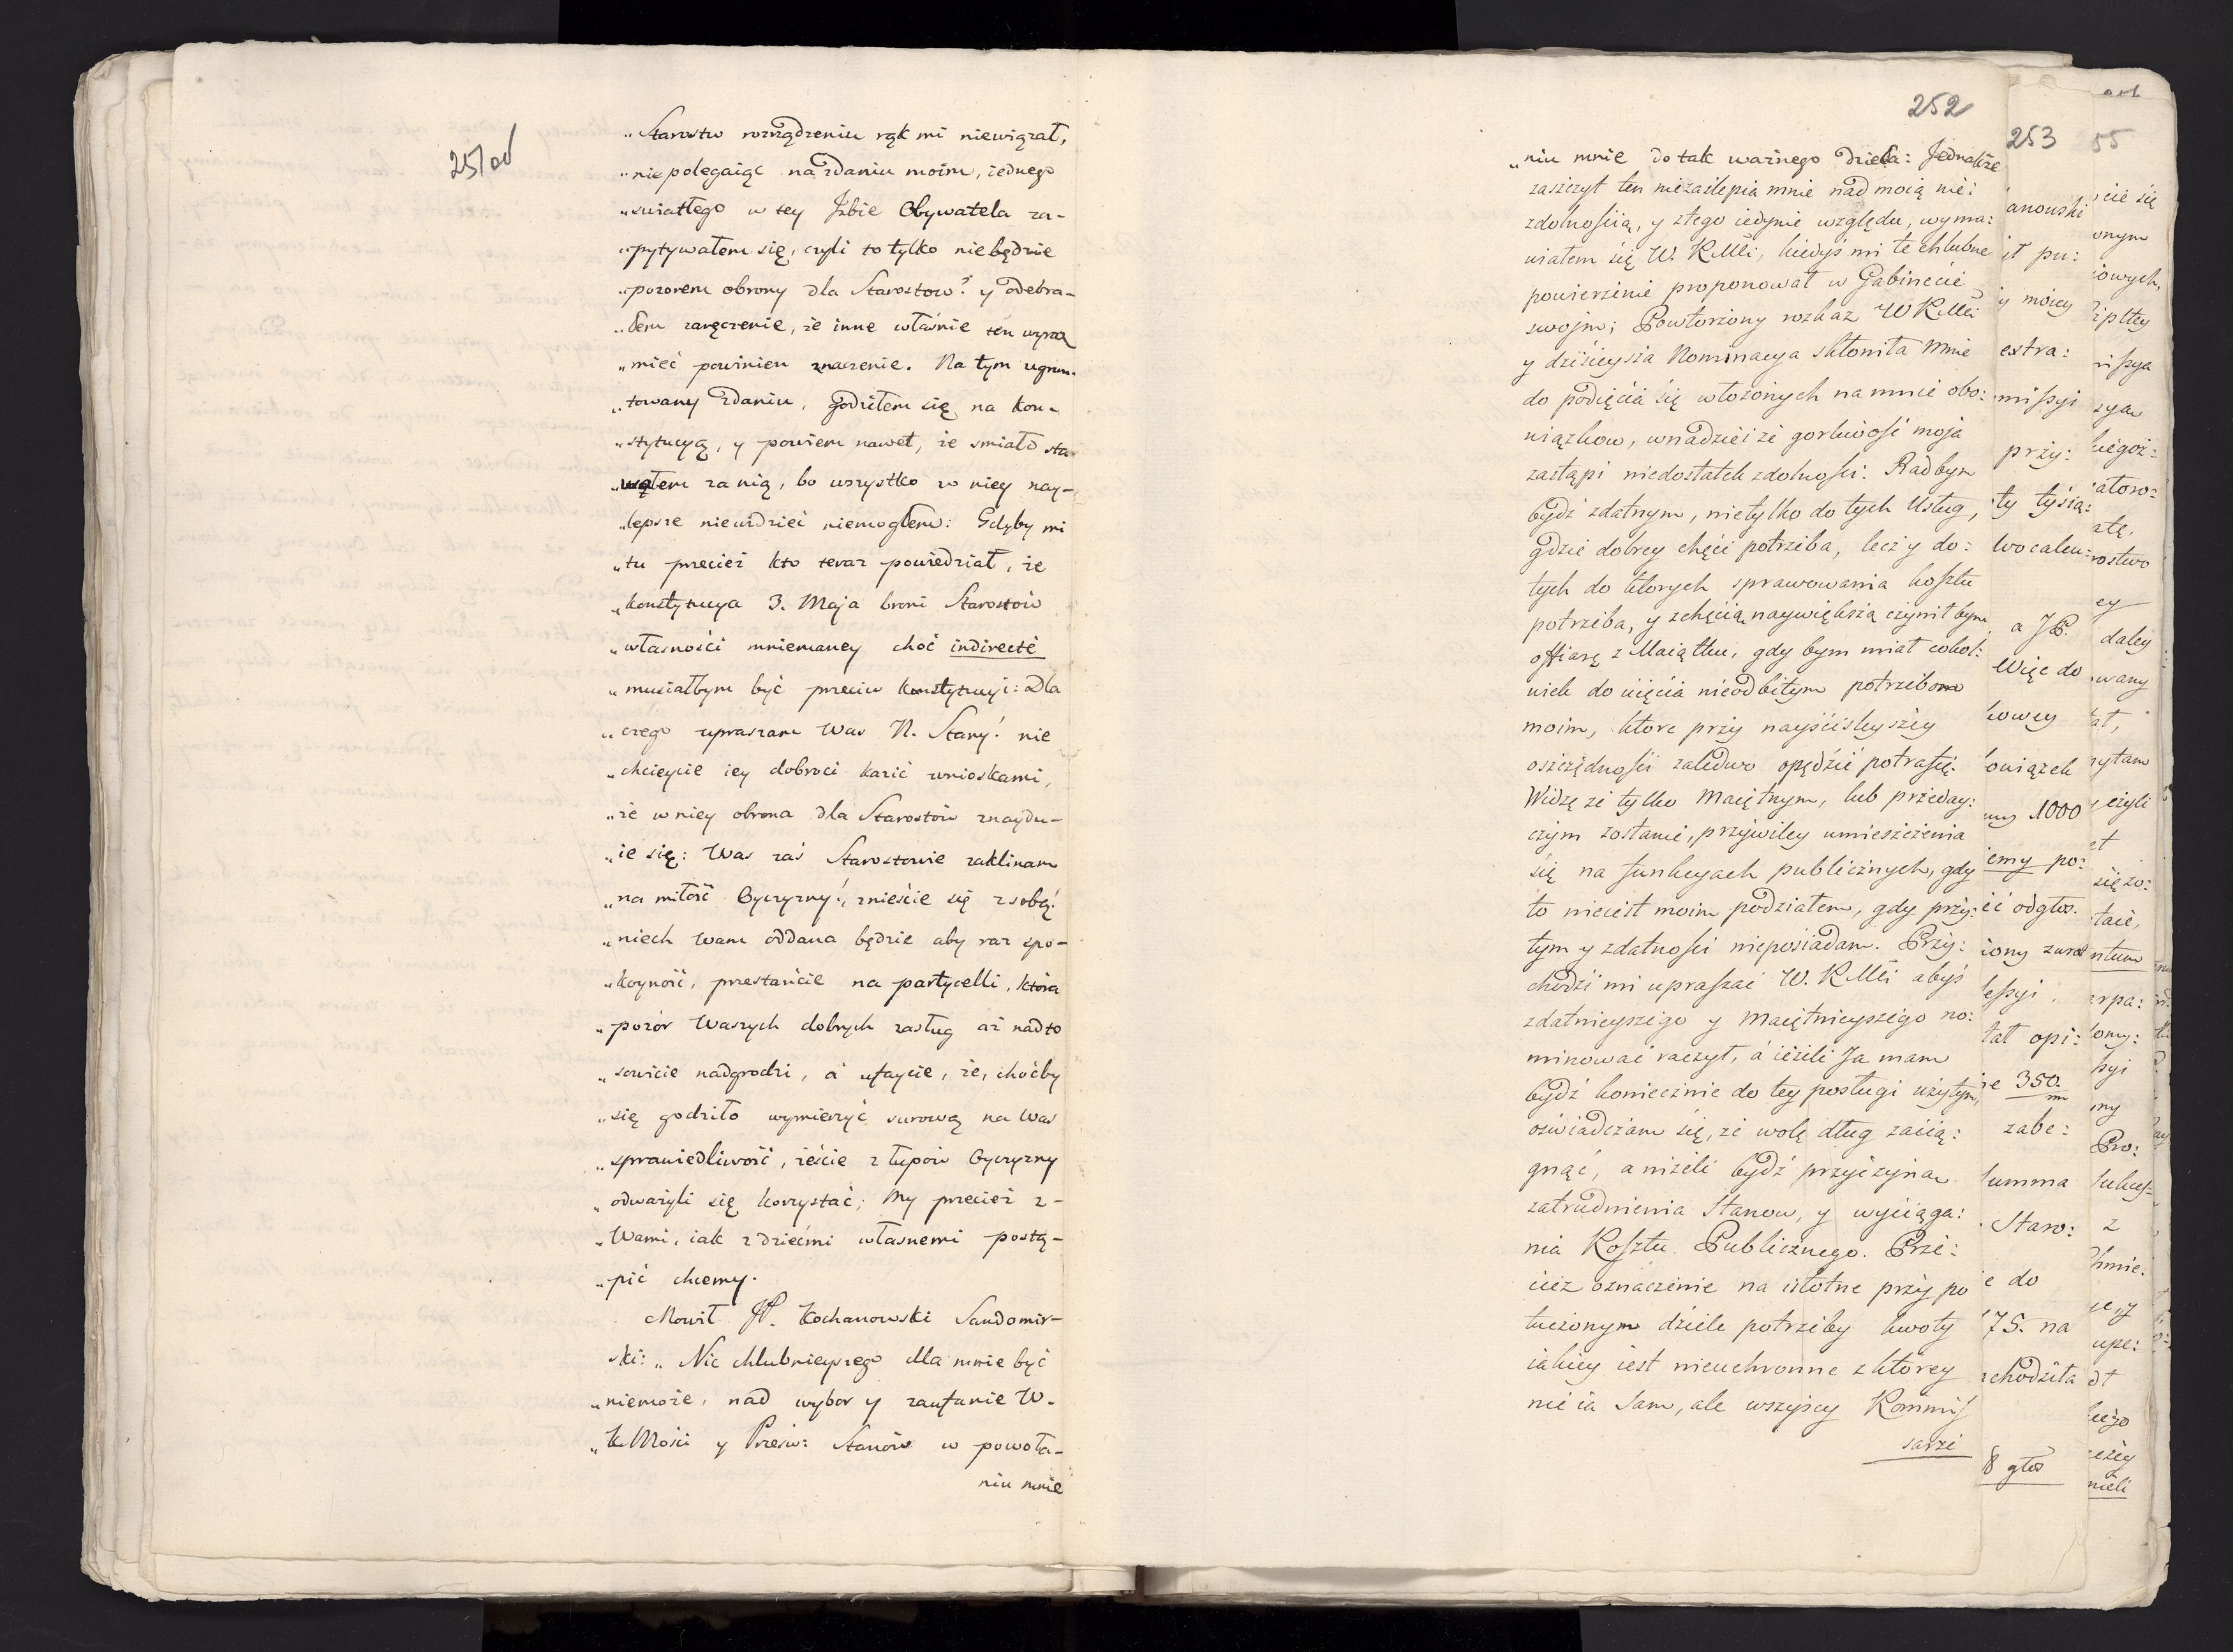 251od
„Starostw rozrządzeniu rąk mi niewiązał,
„nie polegaiąc na zdaniu moim, iednego
„swiatłego w tey Jzbie Obywatela za-
„pytywałem się, czyli to tylko nie będzie
„pozorem obrony dla Starostow? y odebra-
„łem zaręczenie, że inne właśnie ten wyraz
„mieć powinien znaczenie. Na tym ugrun-
„towany zdaniu, godziłem się na Kon-
„stytucyą, y powiem nawet, że smiało sta-
„wałem za nią, bo wszystko w niey nay-
„lepsze niewidzieć niemogłem: Gdyby mi
„tu przecież kto teraz powiedział, że
„konstytucya 3. Maja broni Starostów
„własności mniemaney choć indirecté
„musiałbym być przeciw konstytucyi: Dla
„czego upraszam Was N. Stany! nie
„chcieycie iey dobroci kazić wnioskami,
„że w niey obrona dla Starostów znaydu-
„ie się: Was zaś Starostowie zaklinam
„na miłość Oyczyzny!, znieście się z sobą!
„niech Wam oddana będzie aby raz spo-
„koyność, przestańcie na partycelli, która
„pozór Waszych dobrych zasług aż nadto
„sowicie nadgrodzi, a ufaycie, że, choćby
„się godziło wymierzyć surową na Was
„sprawiedliwość, żeście z łupów Oyczyzny
„odważyli się korzystać; My przecież z-
„Wami, iak z dziećmi własnemi postą-
„pić chcemy.
Mowił JP. Kochanowski Sandomir-
ski: „Nic chlubnieyszego dla mnie być
„niemoże, nad wybor y zaufanie W.
„K Mości y Prześw: Stanów w powoła-
niu mnie
252
„niu mnie do tak ważnego dzieła: Jednakże
zaszczyt ten niezaślepia mnie nad moią nie:
zdolnością, y ztego iedynie względu, wyma:
wiałem się W. KMci, kiedyś mi te chlubne
powierzenie proponował w Gabinecie
swojm; Powtorzony rozkaz WKMci
y dzisieysza Nominacya skłoniła mnie
do podięcia się włożonych na mnie obo:
wiązkow, wnadziei że gorliwość moja
zastąpi niedostatek zdolności: Rad bym
bydź zdatnym, nietylko do tych Usług,
gdzie dobrey chęci potrzeba, lecz y do:
tych do ktorych sprawowania kosztu
potrzeba, y zchęcią naywiększą czynił bym
offiarę z Maiątku, gdy bym miał cokol:
wiek do uięcia nieodbitym potrzebom
moim, ktore przy nayściśleyszey
oszczędności zaledwo opędzić potrafię.
Widzę że tylko Maiętnym, lub przeday:
czym zostanie, przywiley umieszczenia
się na funkcyach publicznych, gdy
to nieiest moim podziałem, gdy przy:
tym y zdatności nieposiadam. Przy:
chodzi mi upraszać W. KMci abyś
zdatnieyszego y Maiętnieyszego no:
minować raczył, á ieżeli Ja mam
bydź koniecznie do tey posługi użytym,
oświadczam się, że wolę dług zacią:
gnąć, a niżeli bydź przyczyną
zatrudnienia Stanow, y wyciąga:
nia Kosztu Publicznego. Prze:
cież oznaczenie na istotne przy po
łuczonym dziele potrzeby kwoty
iakiey iest nieuchronne z ktorey
nie ia Sam, ale wszyscy Kommis
sarze
253
anowski
ił pu:
y moiey
extra:
missyi
przy:
ty tysią:
wo calen:
a JP.
Więc do
kowey
owiązek
1000
iemy po:
ić odgłos.
iony zarat
lessyi
tał opi:
ie 350.
zabe:
Summa
Staro:
e do
75. na
chodziła
8 głos
55
cie się
onym
iowych,
missya
atoro:
ostwo
ey
daley
wany
ytam
czyli
się zo:
ntum
Pro:
z
upe: